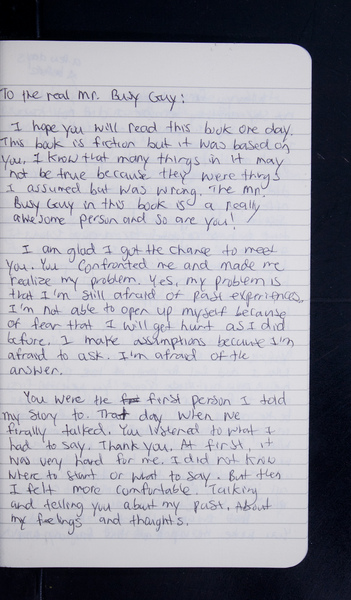 To the real Mr. Busy Guy:
I hope you will read this book one day.
This book is fiction but it was based on
you. I know that many things in it may
not be true because they were things
I assumed but was wrong. The Mr.
Busy Guy in this book is a really
awesome person and so are you!
I am glad I got the chance to meet
you. You confronted me and made me
realize my problem. Yes, my problem is
that I'm still afraid of past experiences.
I'm not able to open up myself because
of fear that I will get hurt as I did
before. I make assumptions because I'm
afraid to ask. I'm afraid of the
answer.
You were the first person I told
my story to. That day when we
finally talked. You listened to what I
had to say. Thank you. At first, it
was very hard for me. I did not know
where to start or what to say. But then
I felt more comfortable. Talking
and telling you about my past. About
my feelings and thoughts.